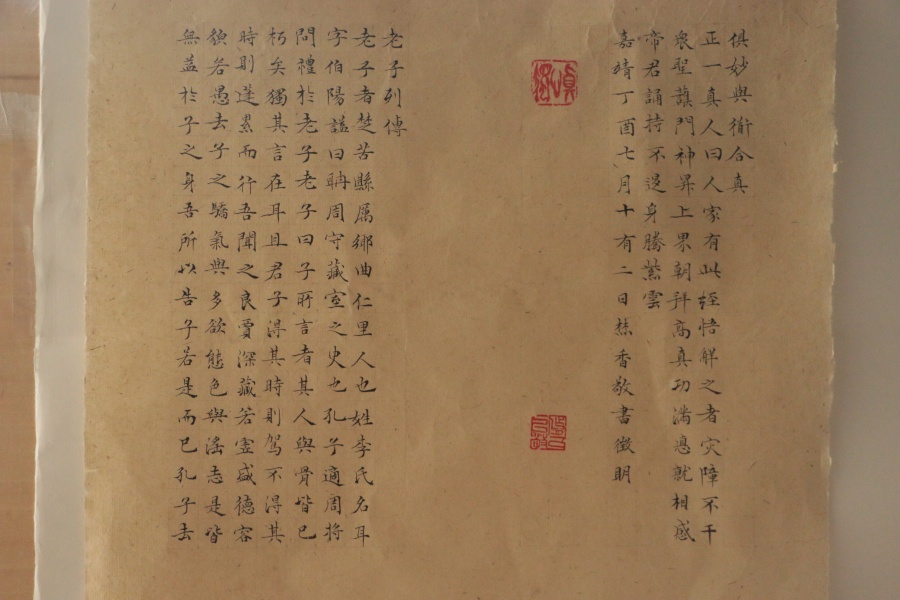 俱妙與衜合真
正一真人曰人家有此経悟觧之者灾障不干
衆聖護門神昇上界朝拜髙真功满悳就相感
帝君誦持不退身騰紫雲
嘉靖丁酉七月十有二日焚香敬書徵明
老子列傳
老子者楚苦縣厲鄉曲仁里人也姓李氏名耳
字伯陽謚曰聃周守藏室之史也孔子適周将
問禮於老子老子曰子所言者其人與骨皆已
朽矣獨其言在耳且君子得其時則驾不得其
時則蓬累而行吾聞之良賈深藏若虛盛德容
貌若愚去子之驕氣與多欲態色與滛志是皆
無益於子之身吾所以告子若是而已孔子去